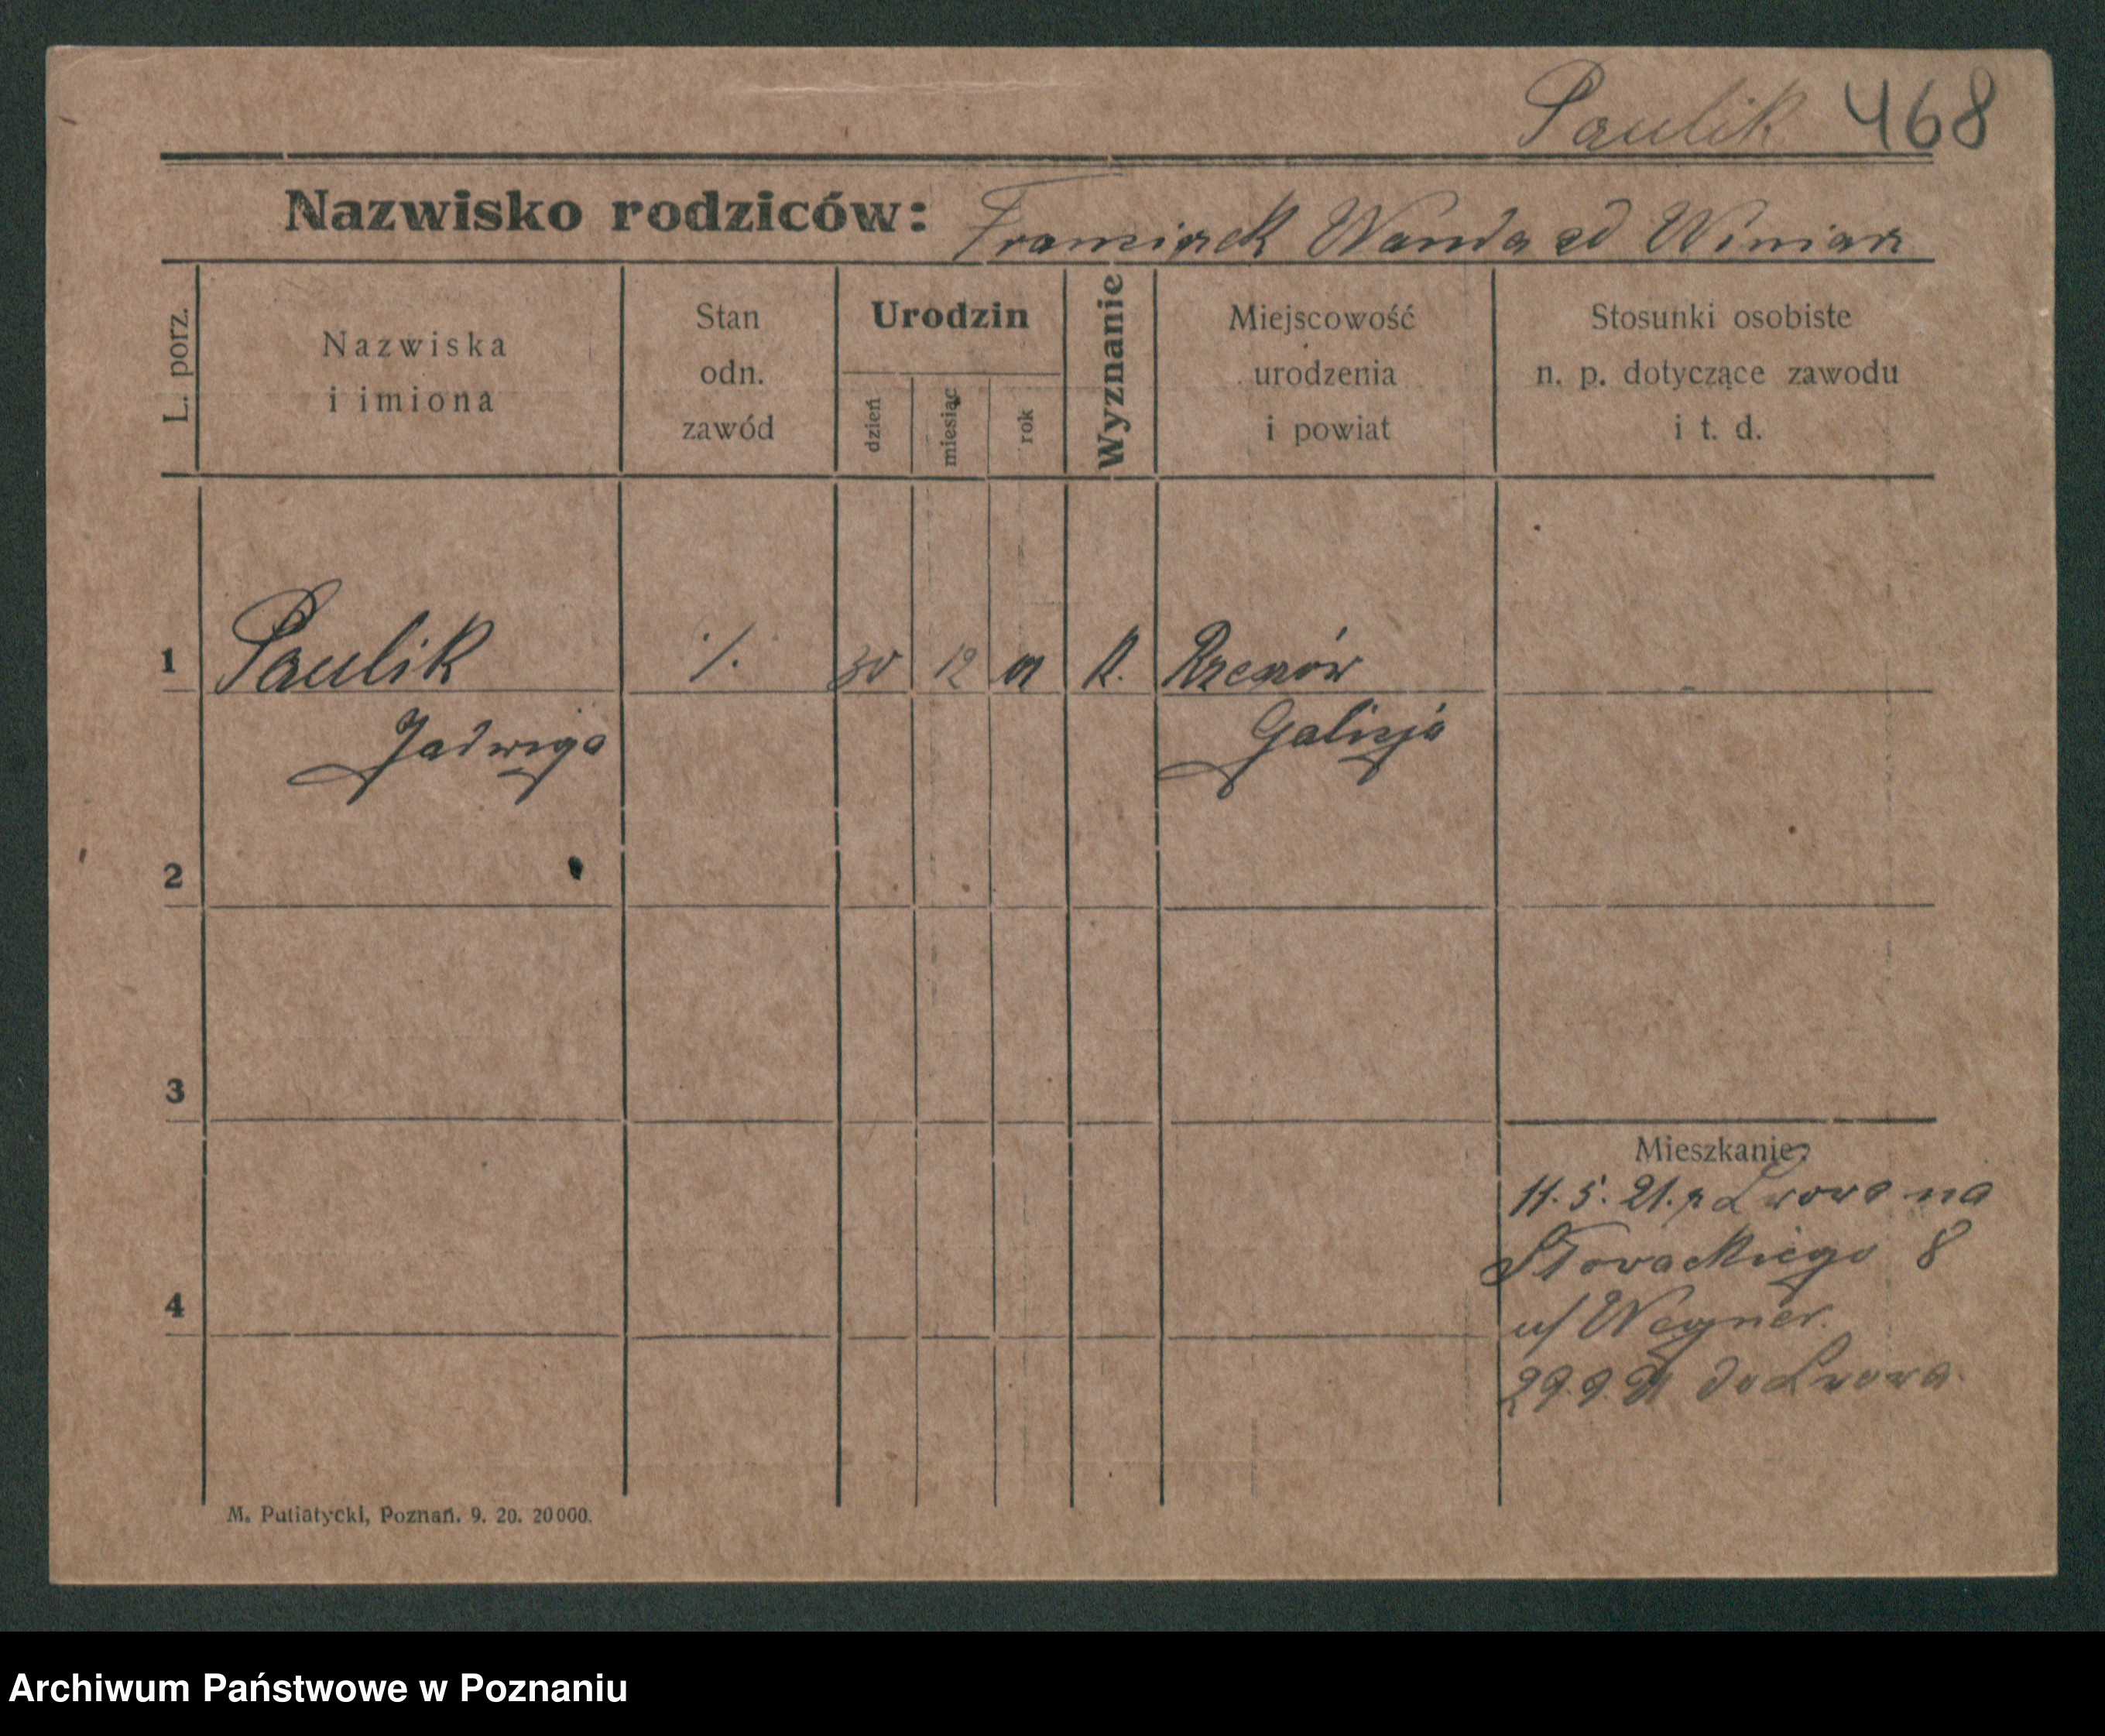 Paulik 468
Nazwisko rodziców: Franciszek Wanda zd Winiarz
L. porz.
Nazwiska
i imiona
Stan
odn.
zawód
Urodzin
dzień
miesiąc
rok
Wyznanie
Miejscowość
urodzenia
i powiat
Stosunki osobiste
n. p. dotyczące zawodu
i t. d.
1 Paulik ·/. 30 12 01 K. Rzeszów
Jadwiga Galicja
2
3
Mieszkanie:
11. 5. 21. z Lwowa na
Słowackiego 8
u/ Wegner.
4
29.9.21 do Lwowa.
M. Putiatycki, Poznań. 9. 20. 20000.
Archiwum Państwowe w Poznaniu